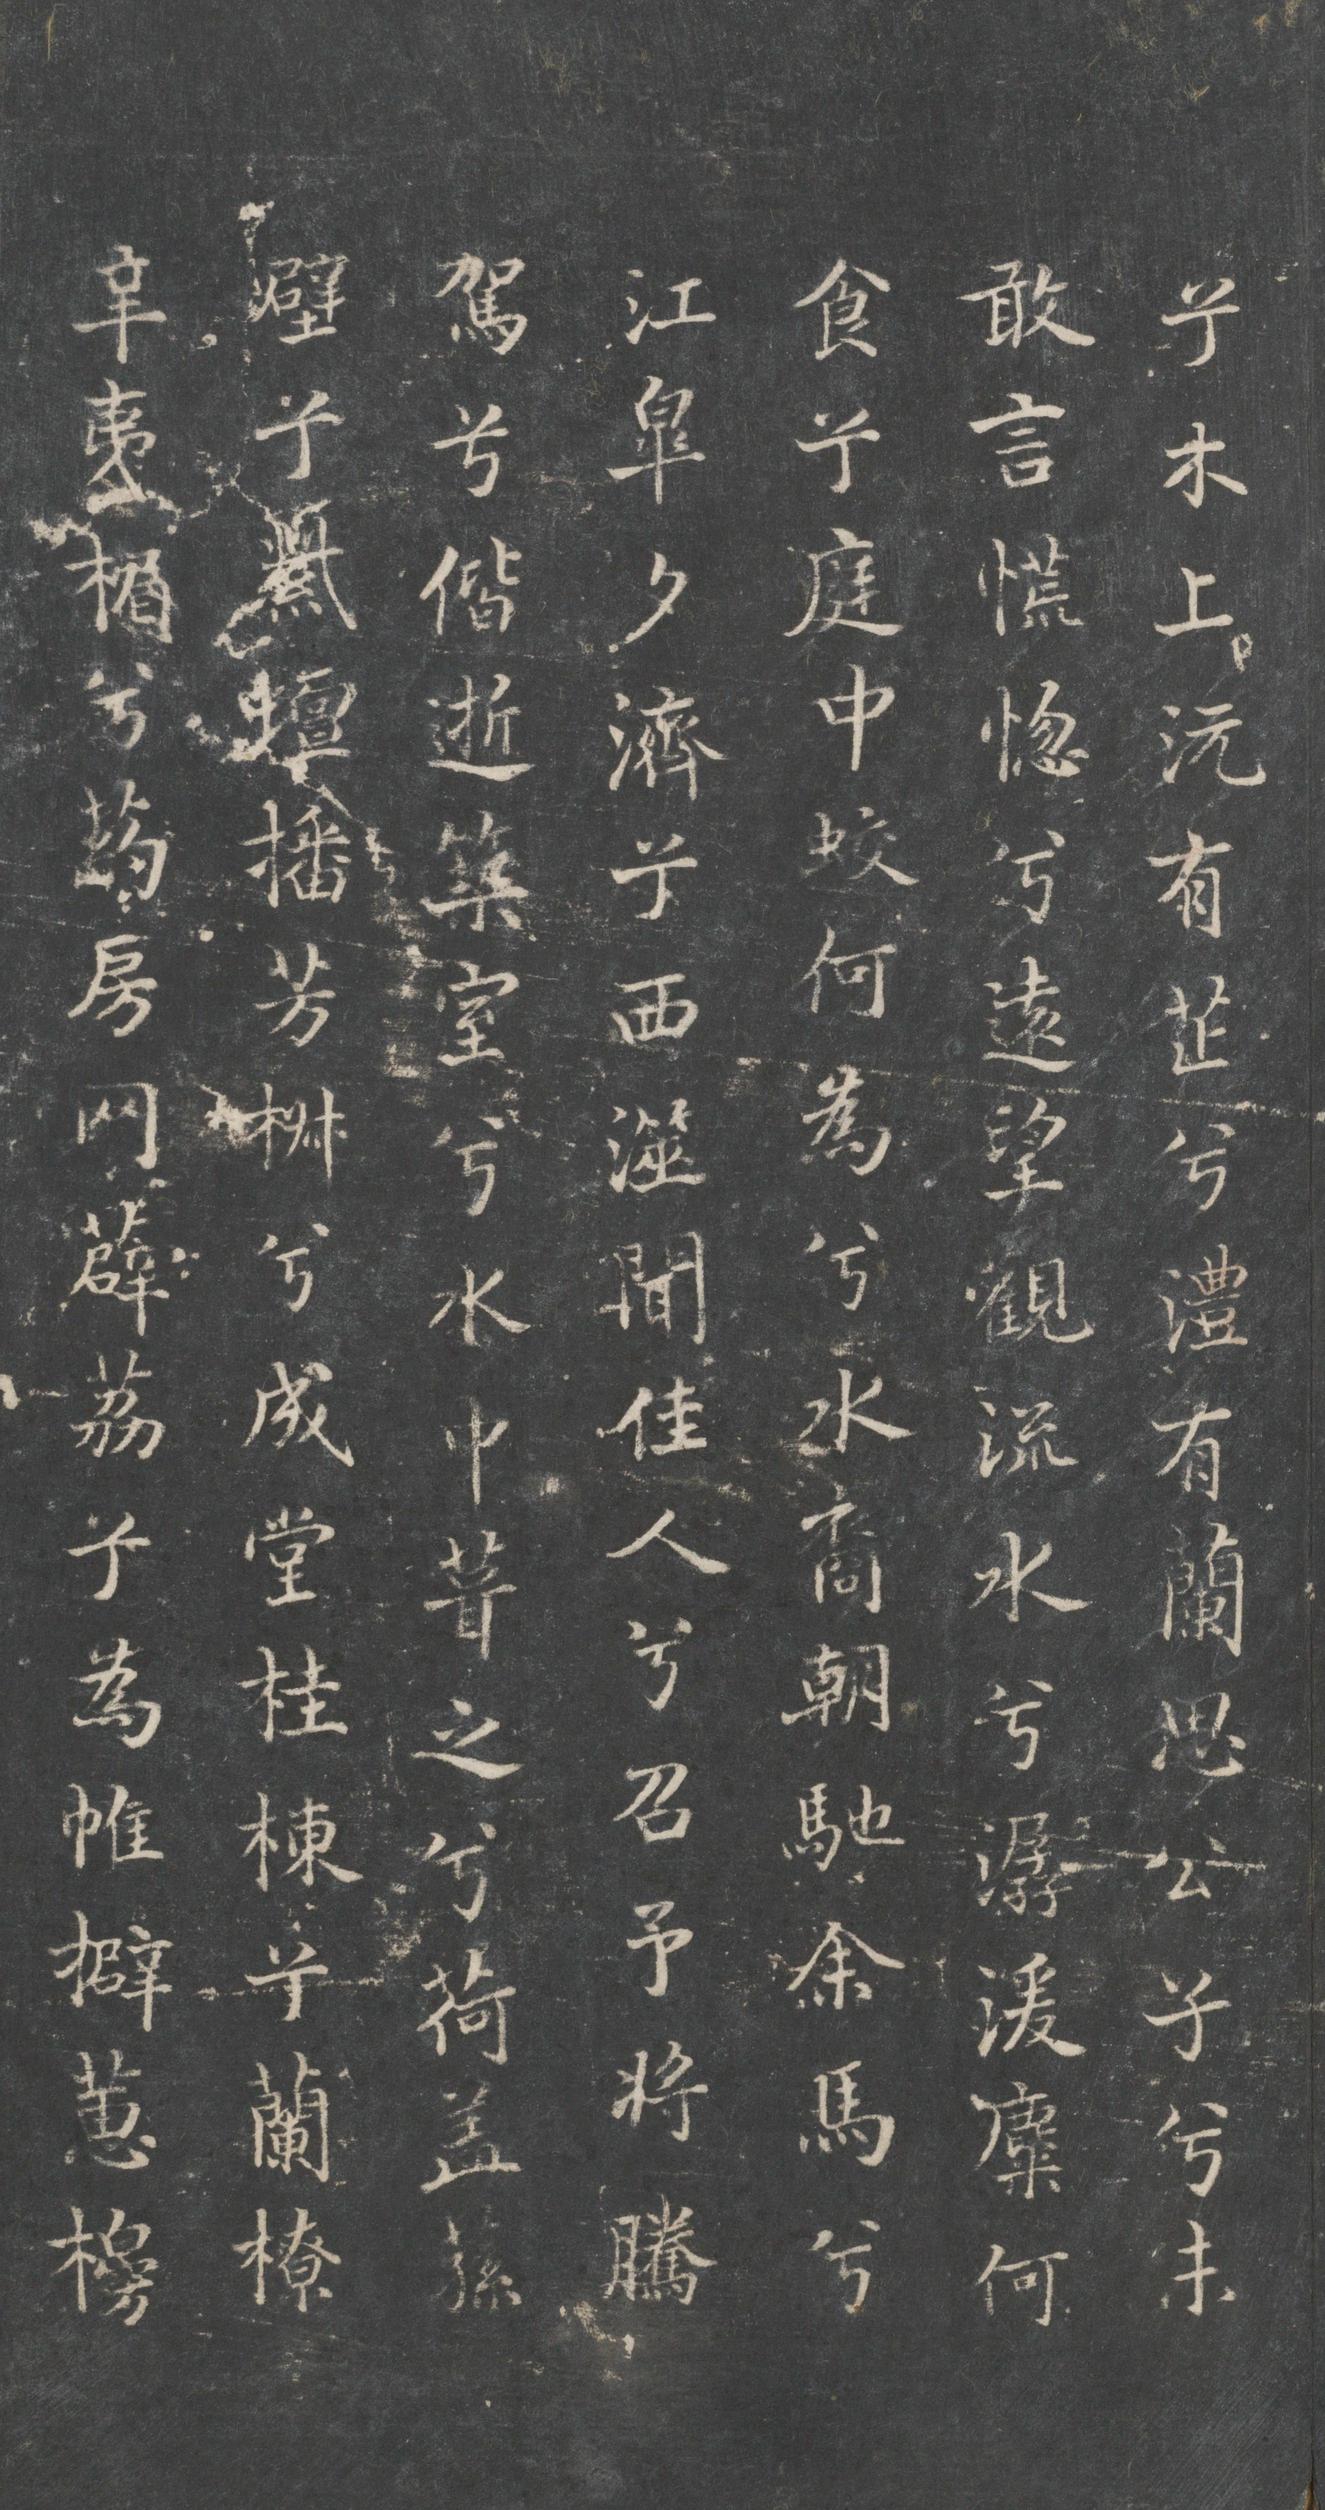 兮木上沅有芷兮澧有蘭思公子兮未
敢言慌惚兮遠望觀流水兮潺湲麋何
食兮庭中蛟何為兮水裔朝馳余馬兮
江皐夕濟兮西澨聞佳人兮召予將騰
駕兮偕逝築室兮水中葺之兮荷盖蓀
壁兮紫壇播芳椒兮成堂桂棟兮蘭橑
辛夷楣兮葯房网薜荔兮為帷擗蕙櫋